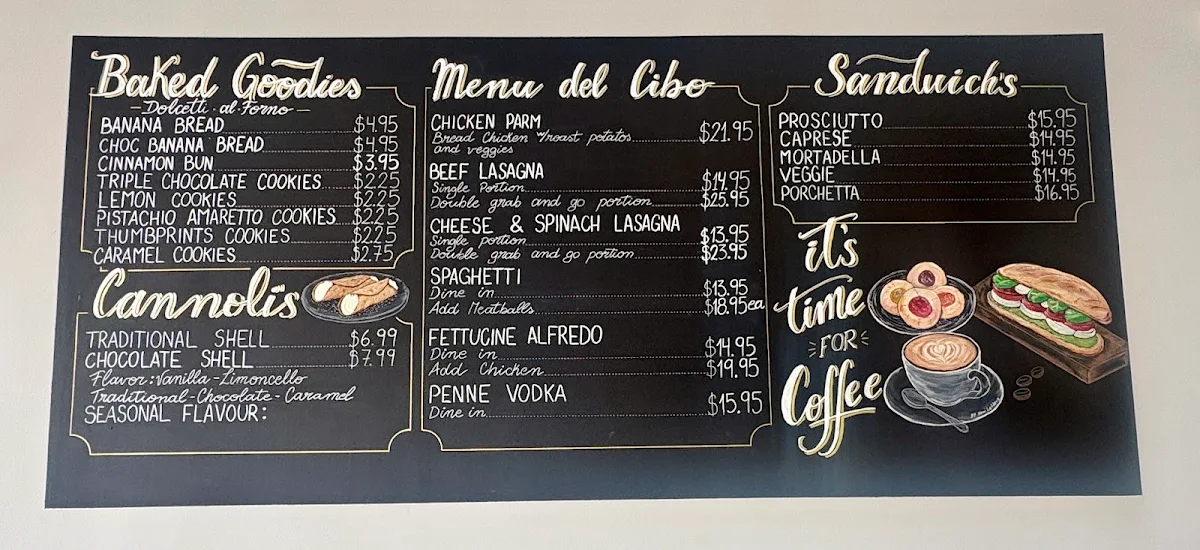 Baked Goodies
Dolcetti al Forno
BANANA BREAD $4.95
CHOC BANANA BREAD $4.95
CINNAMON BUN $3.95
TRIPLE CHOCOLATE COOKIES $2.25
LEMON COOKIES $2.25
PISTACHIO AMARETTO COOKIES $2.25
THUMBPRINTS COOKIES $2.25
CARAMEL COOKIES $2.75
Cannolis
TRADITIONAL SHELL $6.99
CHOCOLATE SHELL $7.99
Flavor: Vanilla - Limoncello
Traditional - Chocolate - Caramel
SEASONAL FLAVOUR:
Menu del Cibo
CHICKEN PARM
Bread Chicken w/roast potatos $21.95
and veggies
BEEF LASAGNA
Single Portion $14.95
Double grab and go portion $25.95
CHEESE & SPINACH LASAGNA
Single portion $13.95
Double grab and go portion $23.95
SPAGHETTI
Dine in $13.95
Add Meatballs $18.95ea
FETTUCINE ALFREDO
Dine in $14.95
Add Chicken $19.95
PENNE VODKA
Dine in $15.95
Sandwich's
PROSCIUTTO $15.95
CAPRESE $14.95
MORTADELLA $14.95
VEGGIE $14.95
PORCHETTA $16.95
it's
time
FOR
Coffee